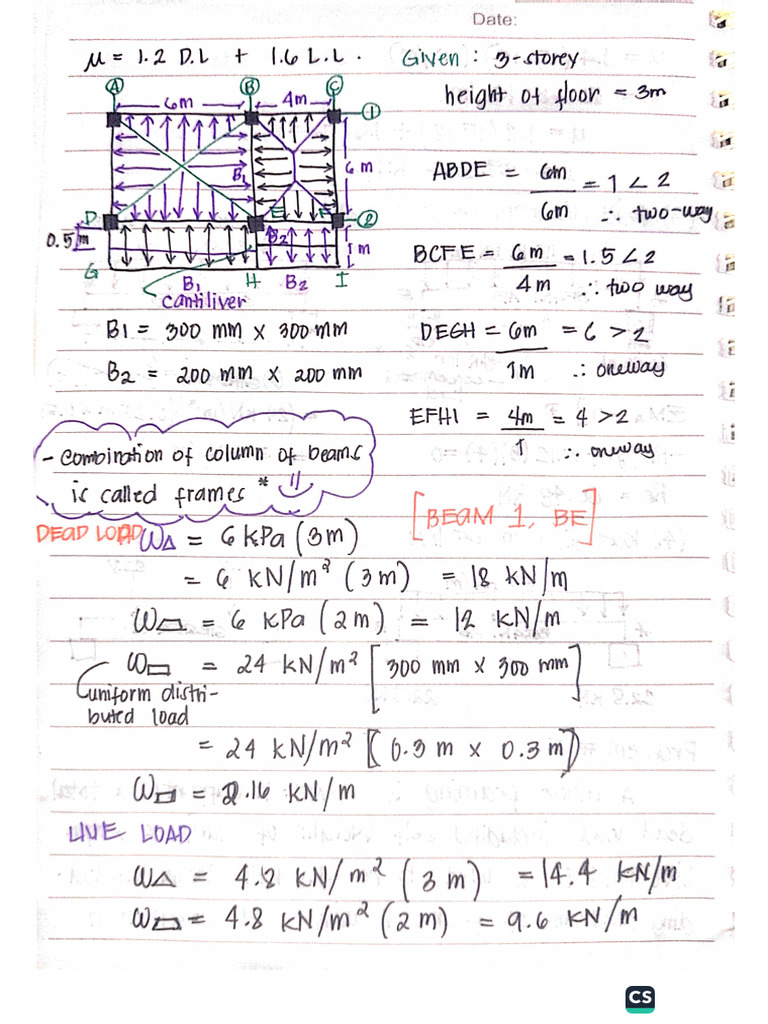 Date:
μ = 1.2 D.L + 1.6 L.L.
Given: 3-storey
height of floor = 3m
A B C
6m 4m
1
B1
6 m
D E F 2
0.5m
B2
1m
G B1 H B2 I
cantiliver
ABDE = 6m/6m = 1 < 2
∴ two-way
BCFE = 6m/4m = 1.5 < 2
∴ two way
B1 = 300 mm x 300 mm
DEGH = 6m/1m = 6 > 2
∴ oneway
B2 = 200 mm x 200 mm
EFHI = 4m/1 = 4 > 2
∴ oneway
- combination of column of beams
is called frames *
[BEAM 1, BE]
DEAD LOAD
W△ = 6 kPa (3m)
= 6 kN/m² (3m) = 18 kN/m
W⏢ = 6 kPa (2m) = 12 kN/m
W▭ = 24 kN/m² [300 mm x 300 mm]
uniform distri-
buted load
= 24 kN/m² [(0.3 m x 0.3 m)]
W▭ = 2.16 kN/m
LIVE LOAD
W△ = 4.8 kN/m² (3 m) = 14.4 kN/m
W⏢ = 4.8 kN/m² (2 m) = 9.6 kN/m
CS